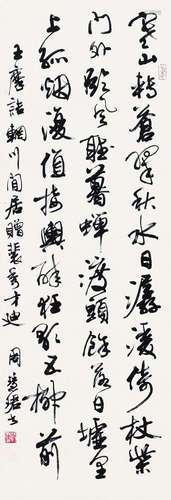 寒山轉蒼翠秋水日潺湲倚杖柴
門外臨風聽暮蟬渡頭餘落日墟里
上孤烟復值接輿醉狂歌五柳前
王摩詰輞川閒居贈裴秀才迪
周慧珺书